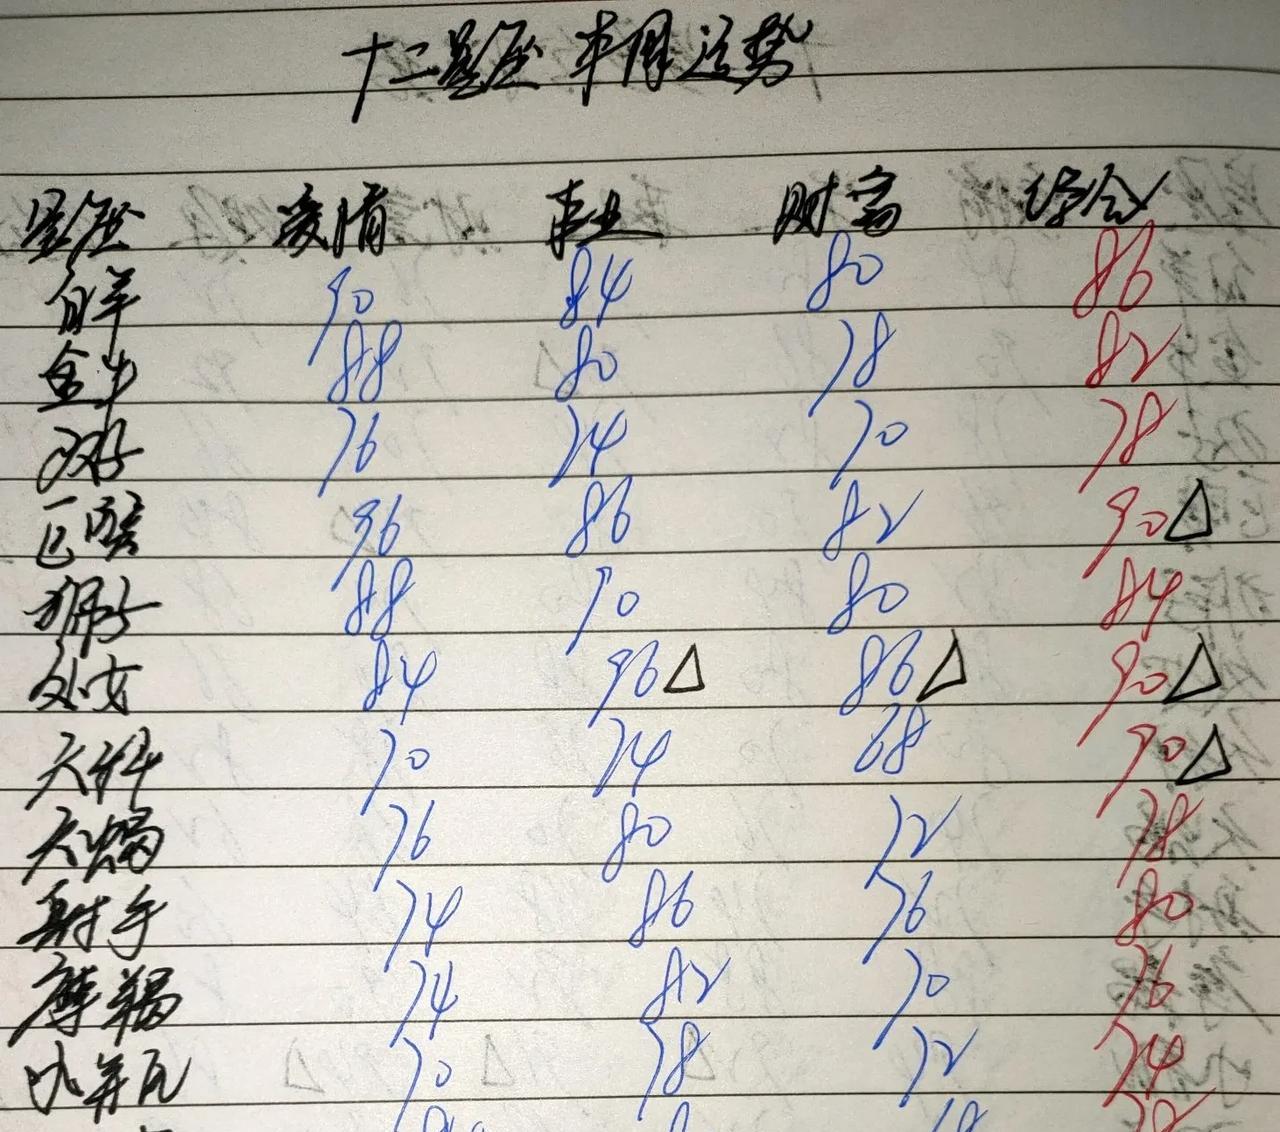 十二星座本周运势
星座 爱情 事业 财富 综合
白羊 90 84 80 86
金牛 88 80 78 82
双子 76 74 70 78
巨蟹 96 86 82 90△
狮子 88 90 80 84
处女 84 96△ 86△ 90△
天秤 70 74 68 90△
天蝎 76 80 72 78
射手 74 86 76 80
摩羯 74 82 70 76
水瓶 70 78 72 74